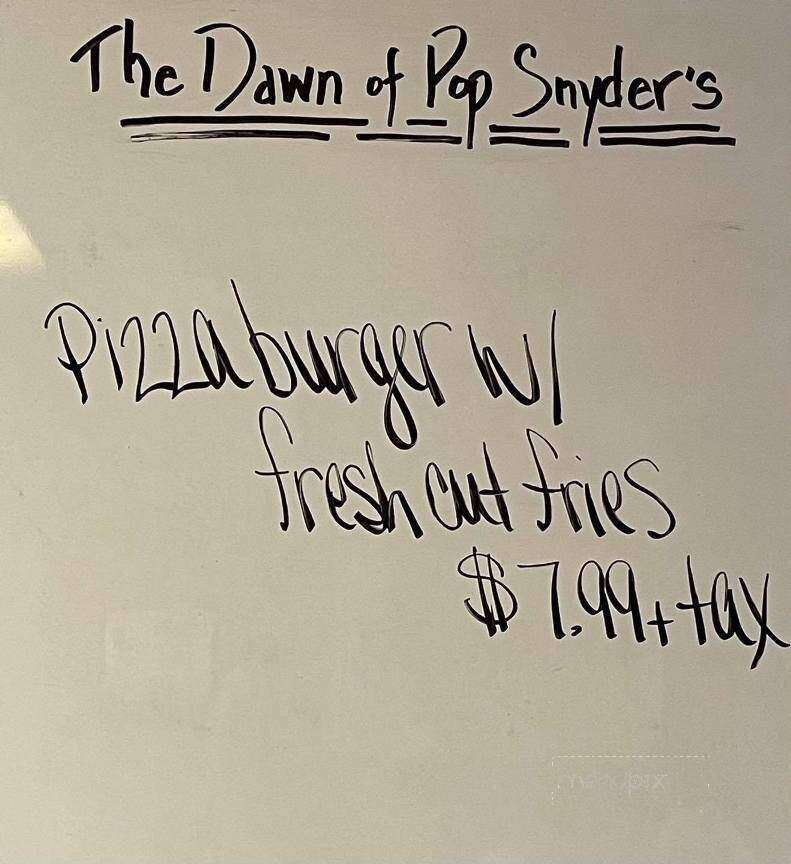 The Dawn of Pop Snyder's
Pizza burger w/
fresh cut fries
$7.99 + tax